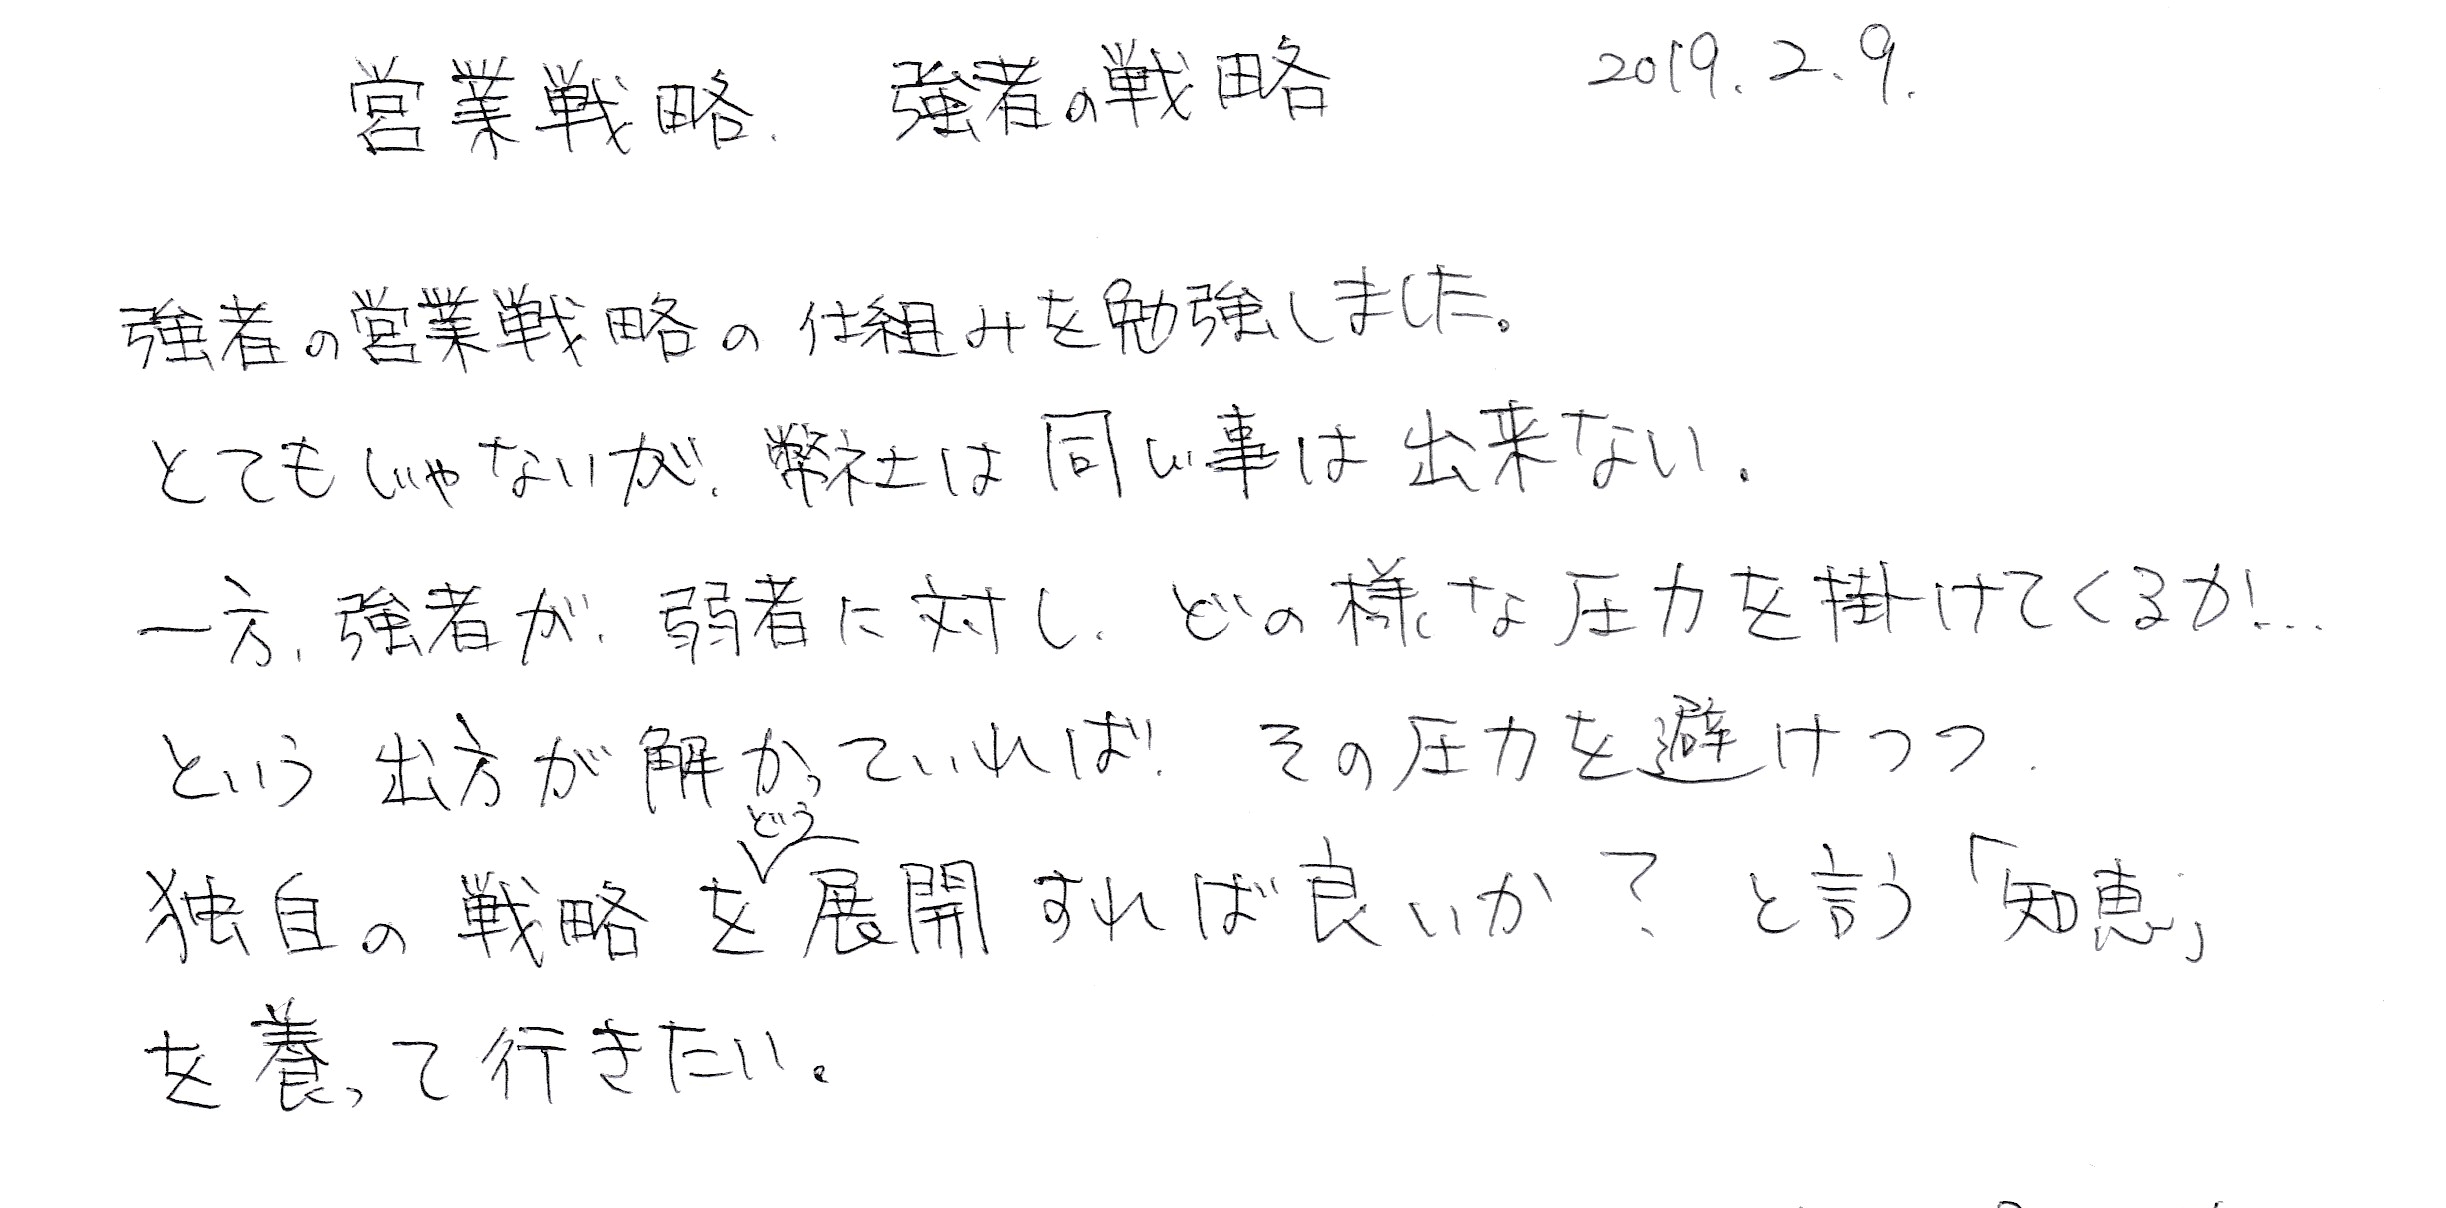 営業戦略. 強者の戦略 2019.2.9.
強者の営業戦略の仕組みを勉強しました。
とてもじゃないが、弊社は同じ事は出来ない.
一方、強者が、弱者に対し、どの様な圧力を掛けてくるか!...
という出方が解かっていれば! その圧力を避けつつ.
どう
独自の戦略を展開すれば良いか? と言う「知恵」
を養って行きたい。